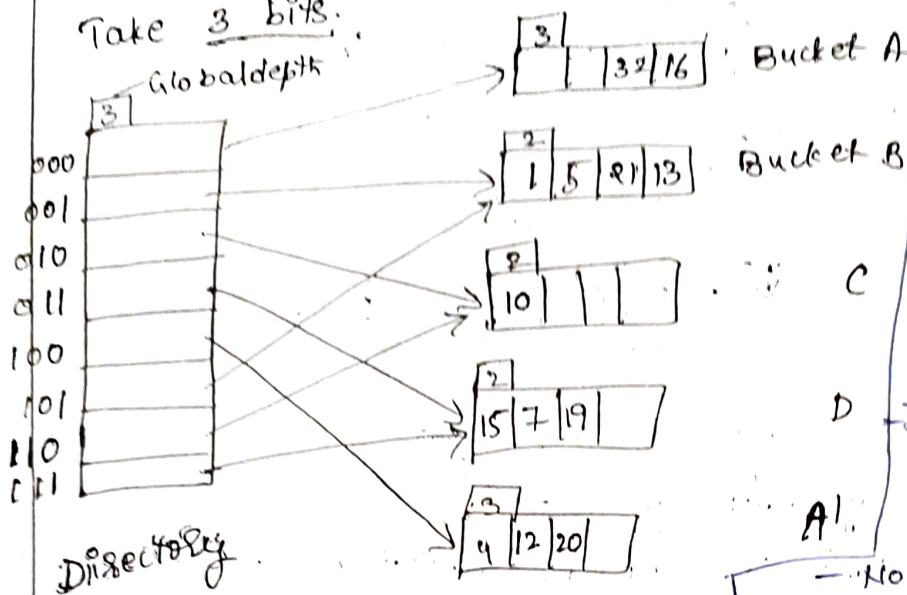 Take 3 bits.
Global depth
3
000
001
010
011
100
101
110
111
Directory
3
32 16 Bucket A
2
1 5 21 13 Bucket B
2
10 C
2
15 7 19 D
3
4 12 20 A1.
No